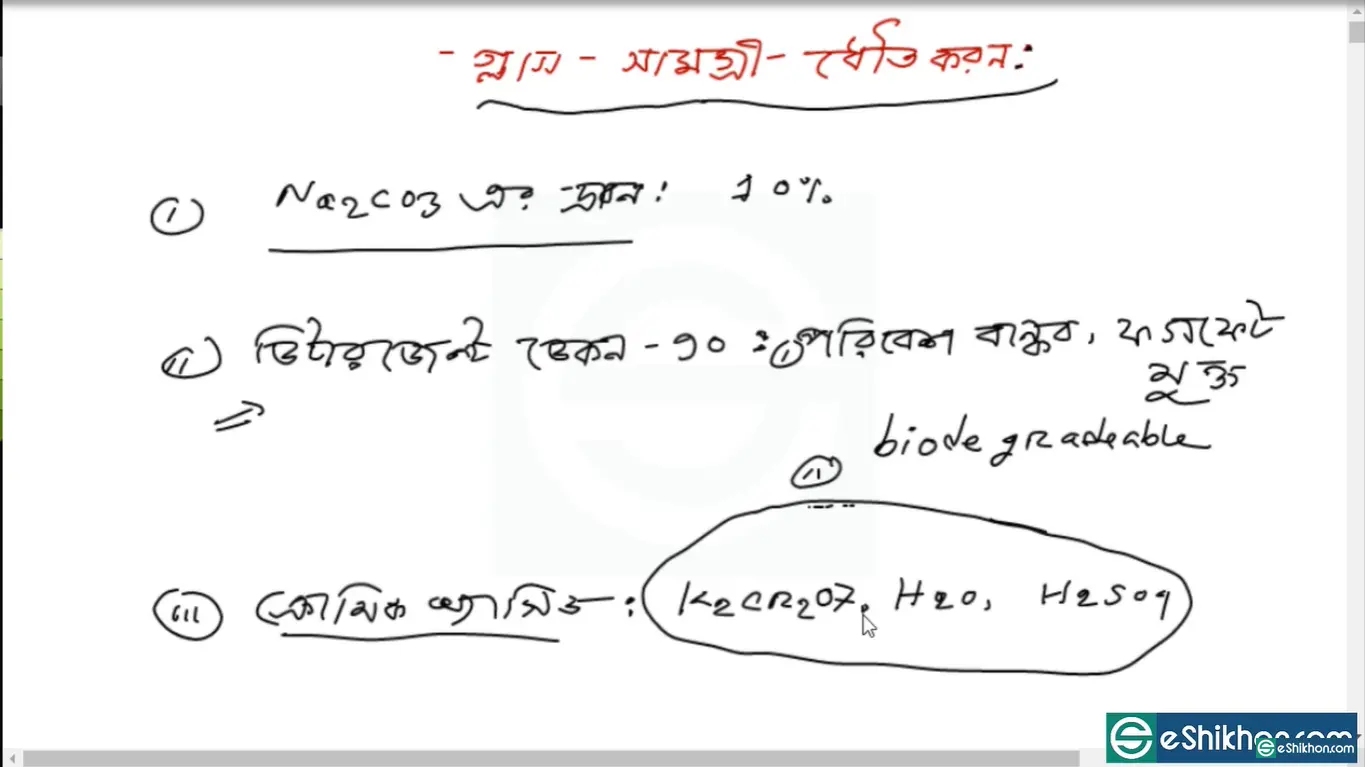 - গ্লাস - সামগ্রী - ধৌতি করন:
(i) Na2CO3 এর দ্রবন: 10%
(ii) ডিটারজেন্ট ডেকন - 90 : (i) পরিবেশ বান্ধব, ফসফেট
মুক্ত
⇒
biodegradeable
(ii)
(iii) ক্রোমিক অ্যাসিড : K2Cr2O7, H2O, H2SO4
eShikhon.com
eShikhon.com